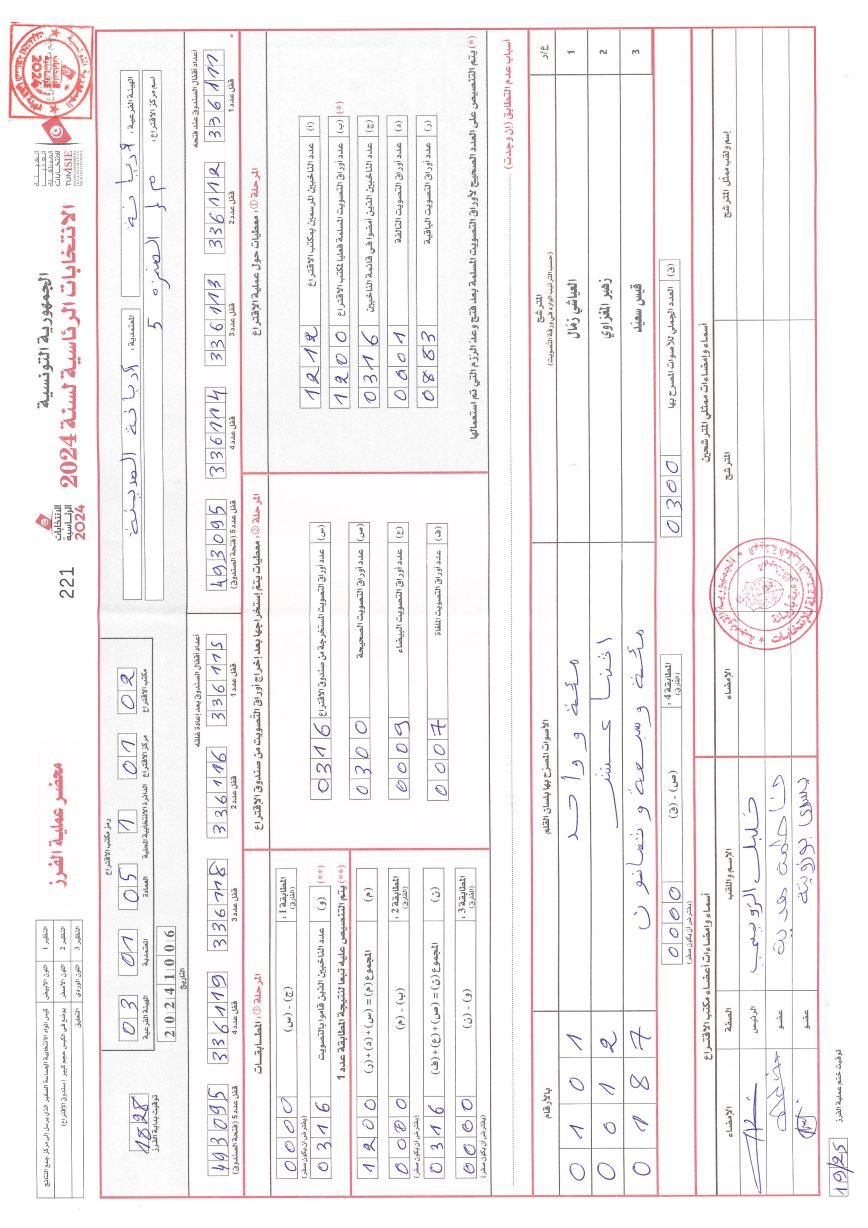 الجمهورية التونسية
الانتخابات الرئاسية لسنة 2024
الانتخابات
الرئاسية
2024
221
محضر عملية الفرز
النظير 1 اللون الأبيض
النظير 2 اللون الأصفر
النظير 3 اللون الوردي التعليق
الهيئة الفرعية : أريانة
المعتمدية : أريانة المدينة
اسم مركز الاقتراع :
رمز مكتب الاقتراع
الهيئة الفرعية 03
المعتمدية 01
العمادة 05
الدائرة الانتخابية المحلية 1
مركز الاقتراع 01
مكتب الاقتراع 02
التاريخ
20241006
توقيت بداية الفرز
18:28
أعداد أقفال الصندوق عند فتحه
336111 قفل عدد 1
336112 قفل عدد 2
336113 قفل عدد 3
336114 قفل عدد 4
493095 قفل عدد 5 (فتحة الصندوق)
أعداد أقفال الصندوق بعد إعادة غلقه
336115 قفل عدد 1
336116 قفل عدد 2
336118 قفل عدد 3
336119 قفل عدد 4
493095 قفل عدد 5 (فتحة الصندوق)
المرحلة ① : معطيات حول عملية الاقتراع
(ا) عدد الناخبين المرسمين بمكتب الاقتراع 1212
(ب) عدد أوراق التصويت المسلمة فعليا لمكتب الاقتراع (*) 1200
(ج) عدد الناخبين الذين أمضوا في قائمة الناخبين 0316
(د) عدد أوراق التصويت التالفة 0001
(ر) عدد أوراق التصويت الباقية 0883
(*) يتم التنصيص على العدد الصحيح لأوراق التصويت المسلمة بعد فتح وعد الرزم التي تم استعمالها
المرحلة ② : معطيات يتم إستخراجها بعد إخراج أوراق التصويت من صندوق الاقتراع
(س) عدد أوراق التصويت المستخرجة من صندوق الاقتراع 0316
(ص) عدد أوراق التصويت الصحيحة 0300
(ع) عدد أوراق التصويت البيضاء 0009
(ف) عدد أوراق التصويت الملغاة 0007
المرحلة ③ : المطابقات
المطابقة 1 : (الفارق) (ج) - (س) 0000 (يفترض أن يكون صفر)
(و) عدد الناخبين الذين قاموا بالتصويت (**) 0316
(**) يتم التنصيص عليه تبعا لنتيجة المطابقة عدد 1
(م) المجموع (م) = (س) + (د) + (ر) 1200
المطابقة 2 : (الفارق) (ب) - (م) 0000 (يفترض أن يكون صفر)
(ن) المجموع (ن) = (ص) + (ع) + (ف) 0316
المطابقة 3 : (الفارق) (و) - (ن) 0000 (يفترض أن يكون صفر)
أسباب عدم التطابق (إن وجدت)
ع/ر المترشح الأصوات المصرّح بها بلسان القلم بالأرقام
(حسب الترتيب الوارد في ورقة التصويت)
1 العياشي زمّال مئة وواحد 0101
2 زهير المغزاوي اثنا عشر 0012
3 قيس سعيد مئة وسبعة وثمانون 0187
(ق) العدد الجملي للأصوات المصرح بها 0300
المطابقة 4 : (الفارق) (ص) - (ق) 0000 (يفترض أن يكون صفر)
أسماء وإمضاءات ممثلي المترشحين
إسم ولقب ممثل المترشح المترشح الإمضاء
أسماء وإمضاءات أعضاء مكتب الاقتراع
الإسم واللقب الصفة الإمضاء
الرئيس
عضو
عضو
توقيت ختم عملية الفرز
19/25